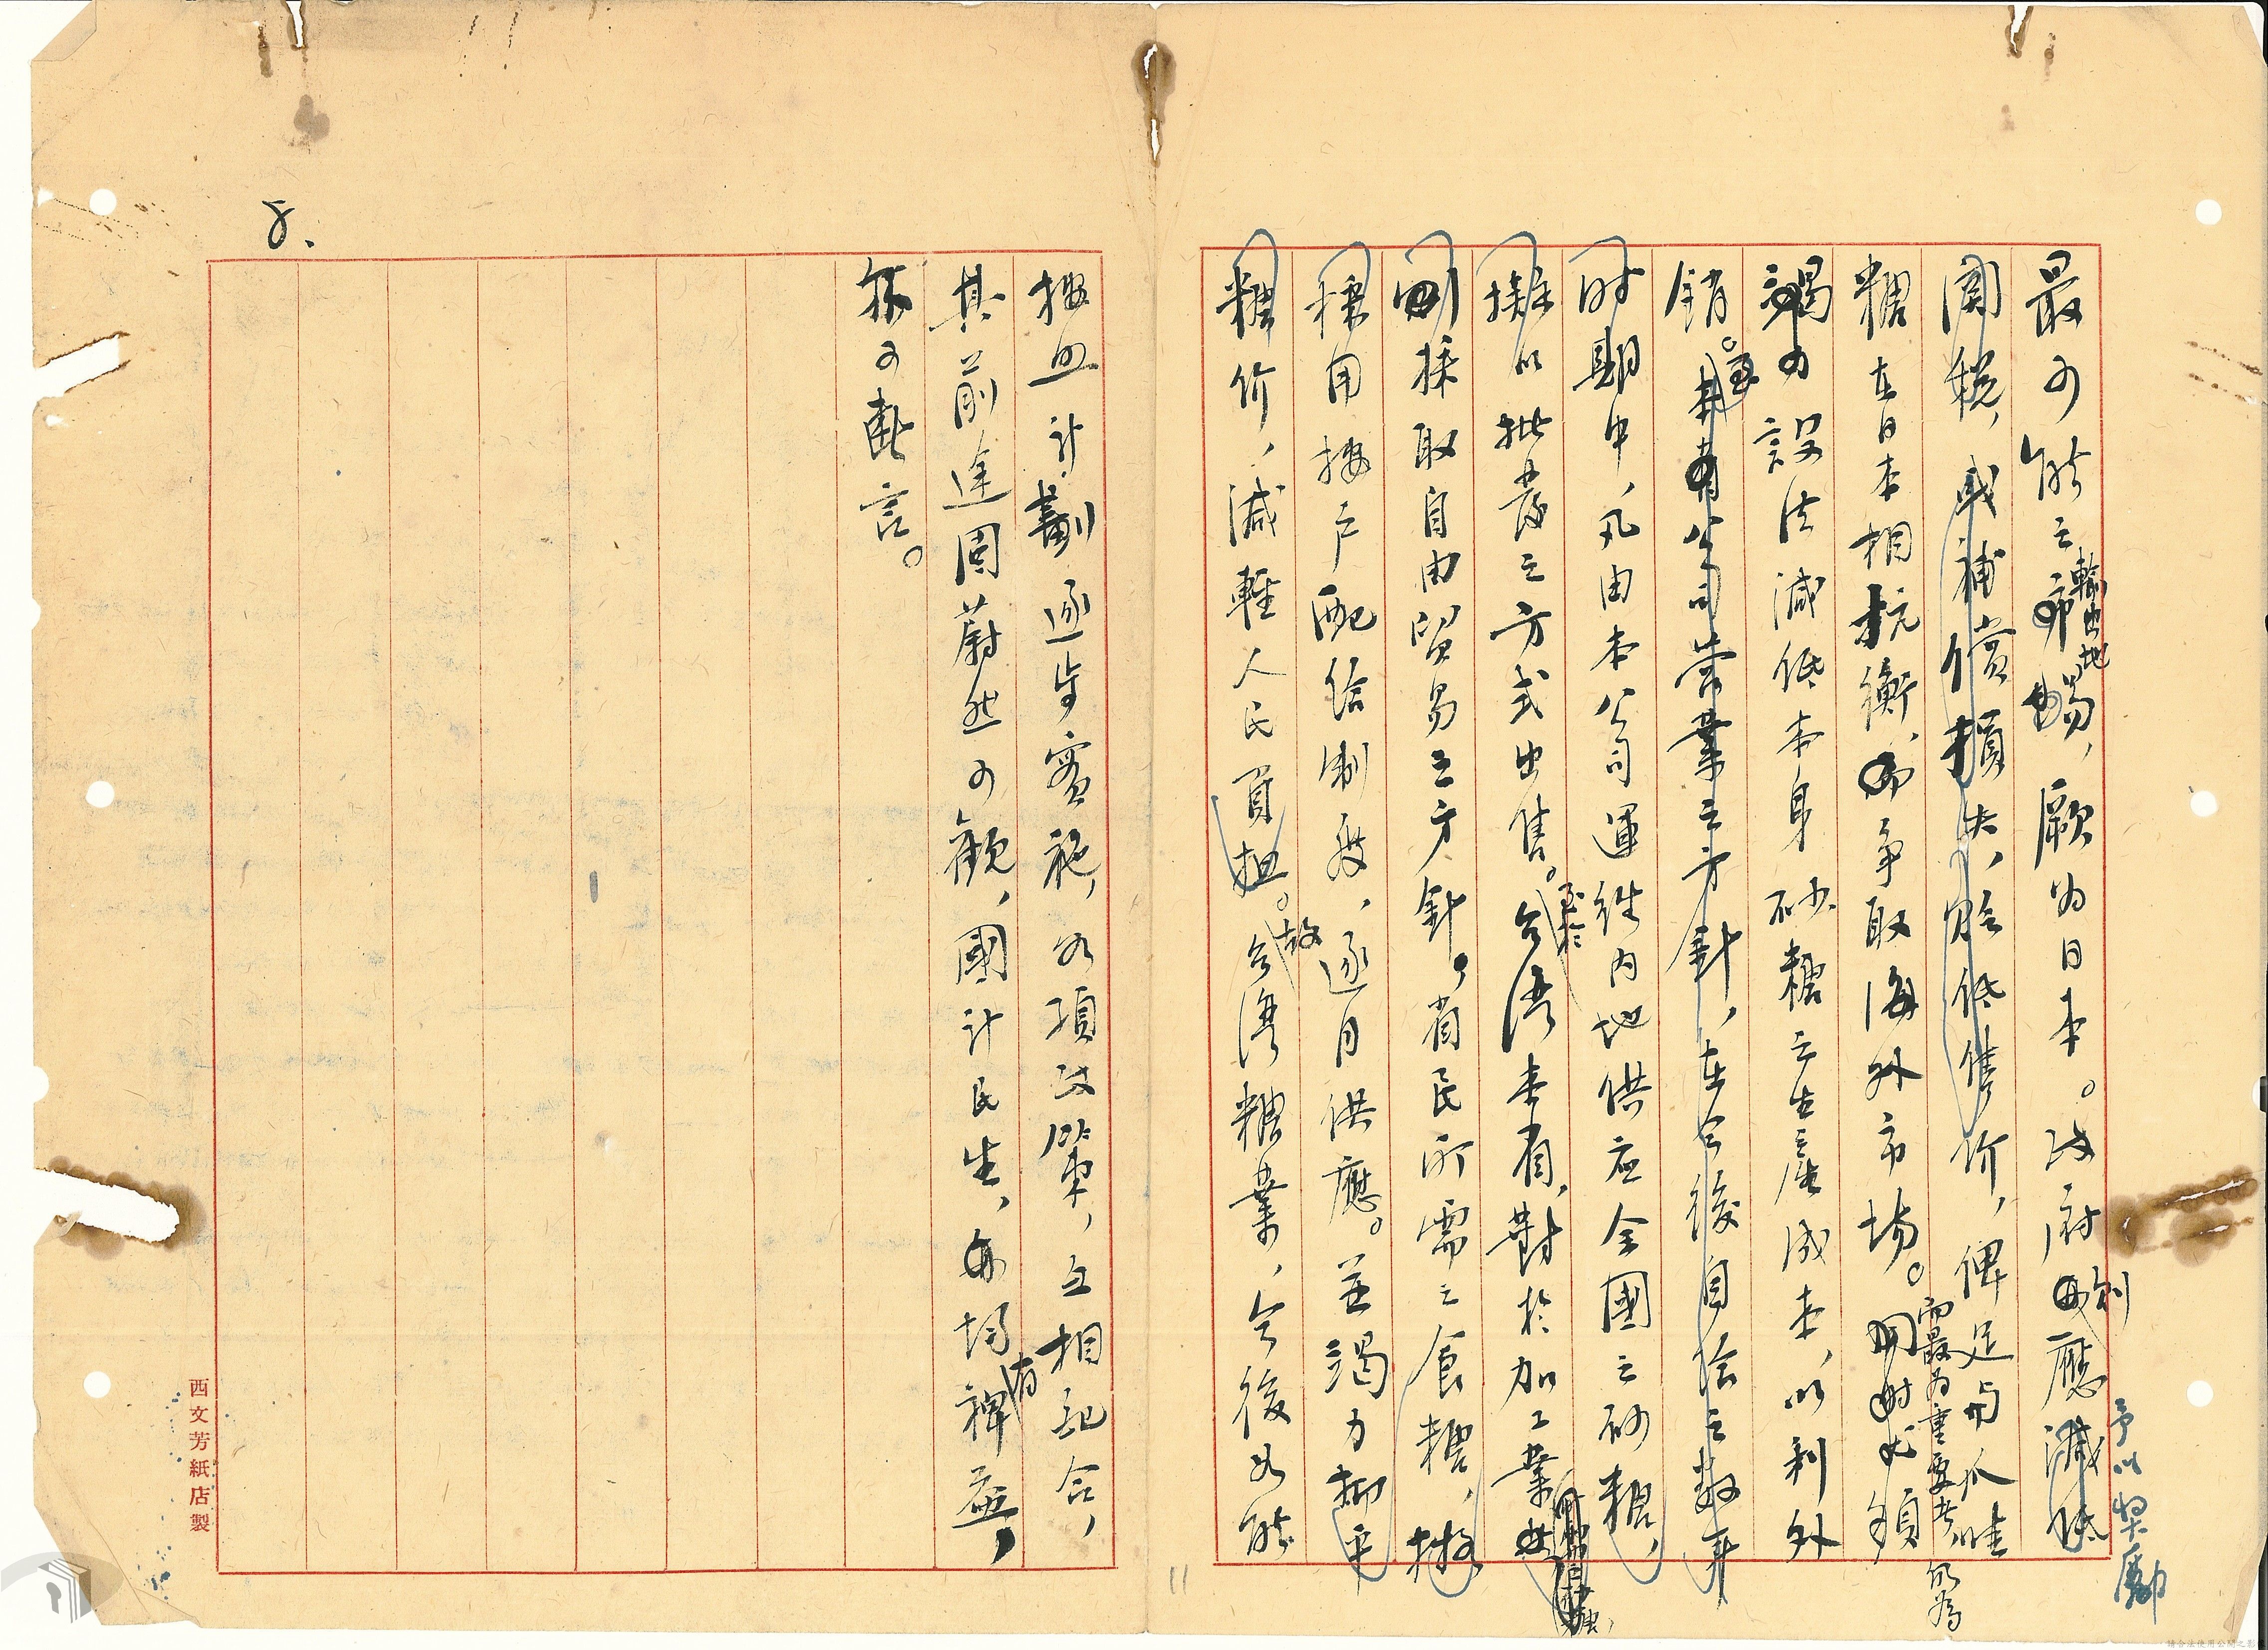 最可能之輸出地,厥為日本。政府則應減低予以獎勵
関税,或補償損失,貶低售价,俾足与爪哇
糖在日本相抗衡,爭取海外市場。而最為重要者,仍為須
竭力設法減低本身砂糖之生產成本,以利外
銷。至本省公司營業之方針,在今後自給之數年
時期中,凡由本公司運往內地供应全國之砂糖,
擬以批發之方式出售。至於台湾本省,對於加工業
則採取自由貿易之方針。省民所需之食糖,擬
採用按户配給制度,逐月供應。並竭力抑平
糖价,減輕人民負担。故台湾糖業,今後如能
按照計劃逐步實施,各項政策,互相配合,
其前途固蔚然可觀,國計民生,均有裨益,
殊可断言。
西文芳紙店製
11